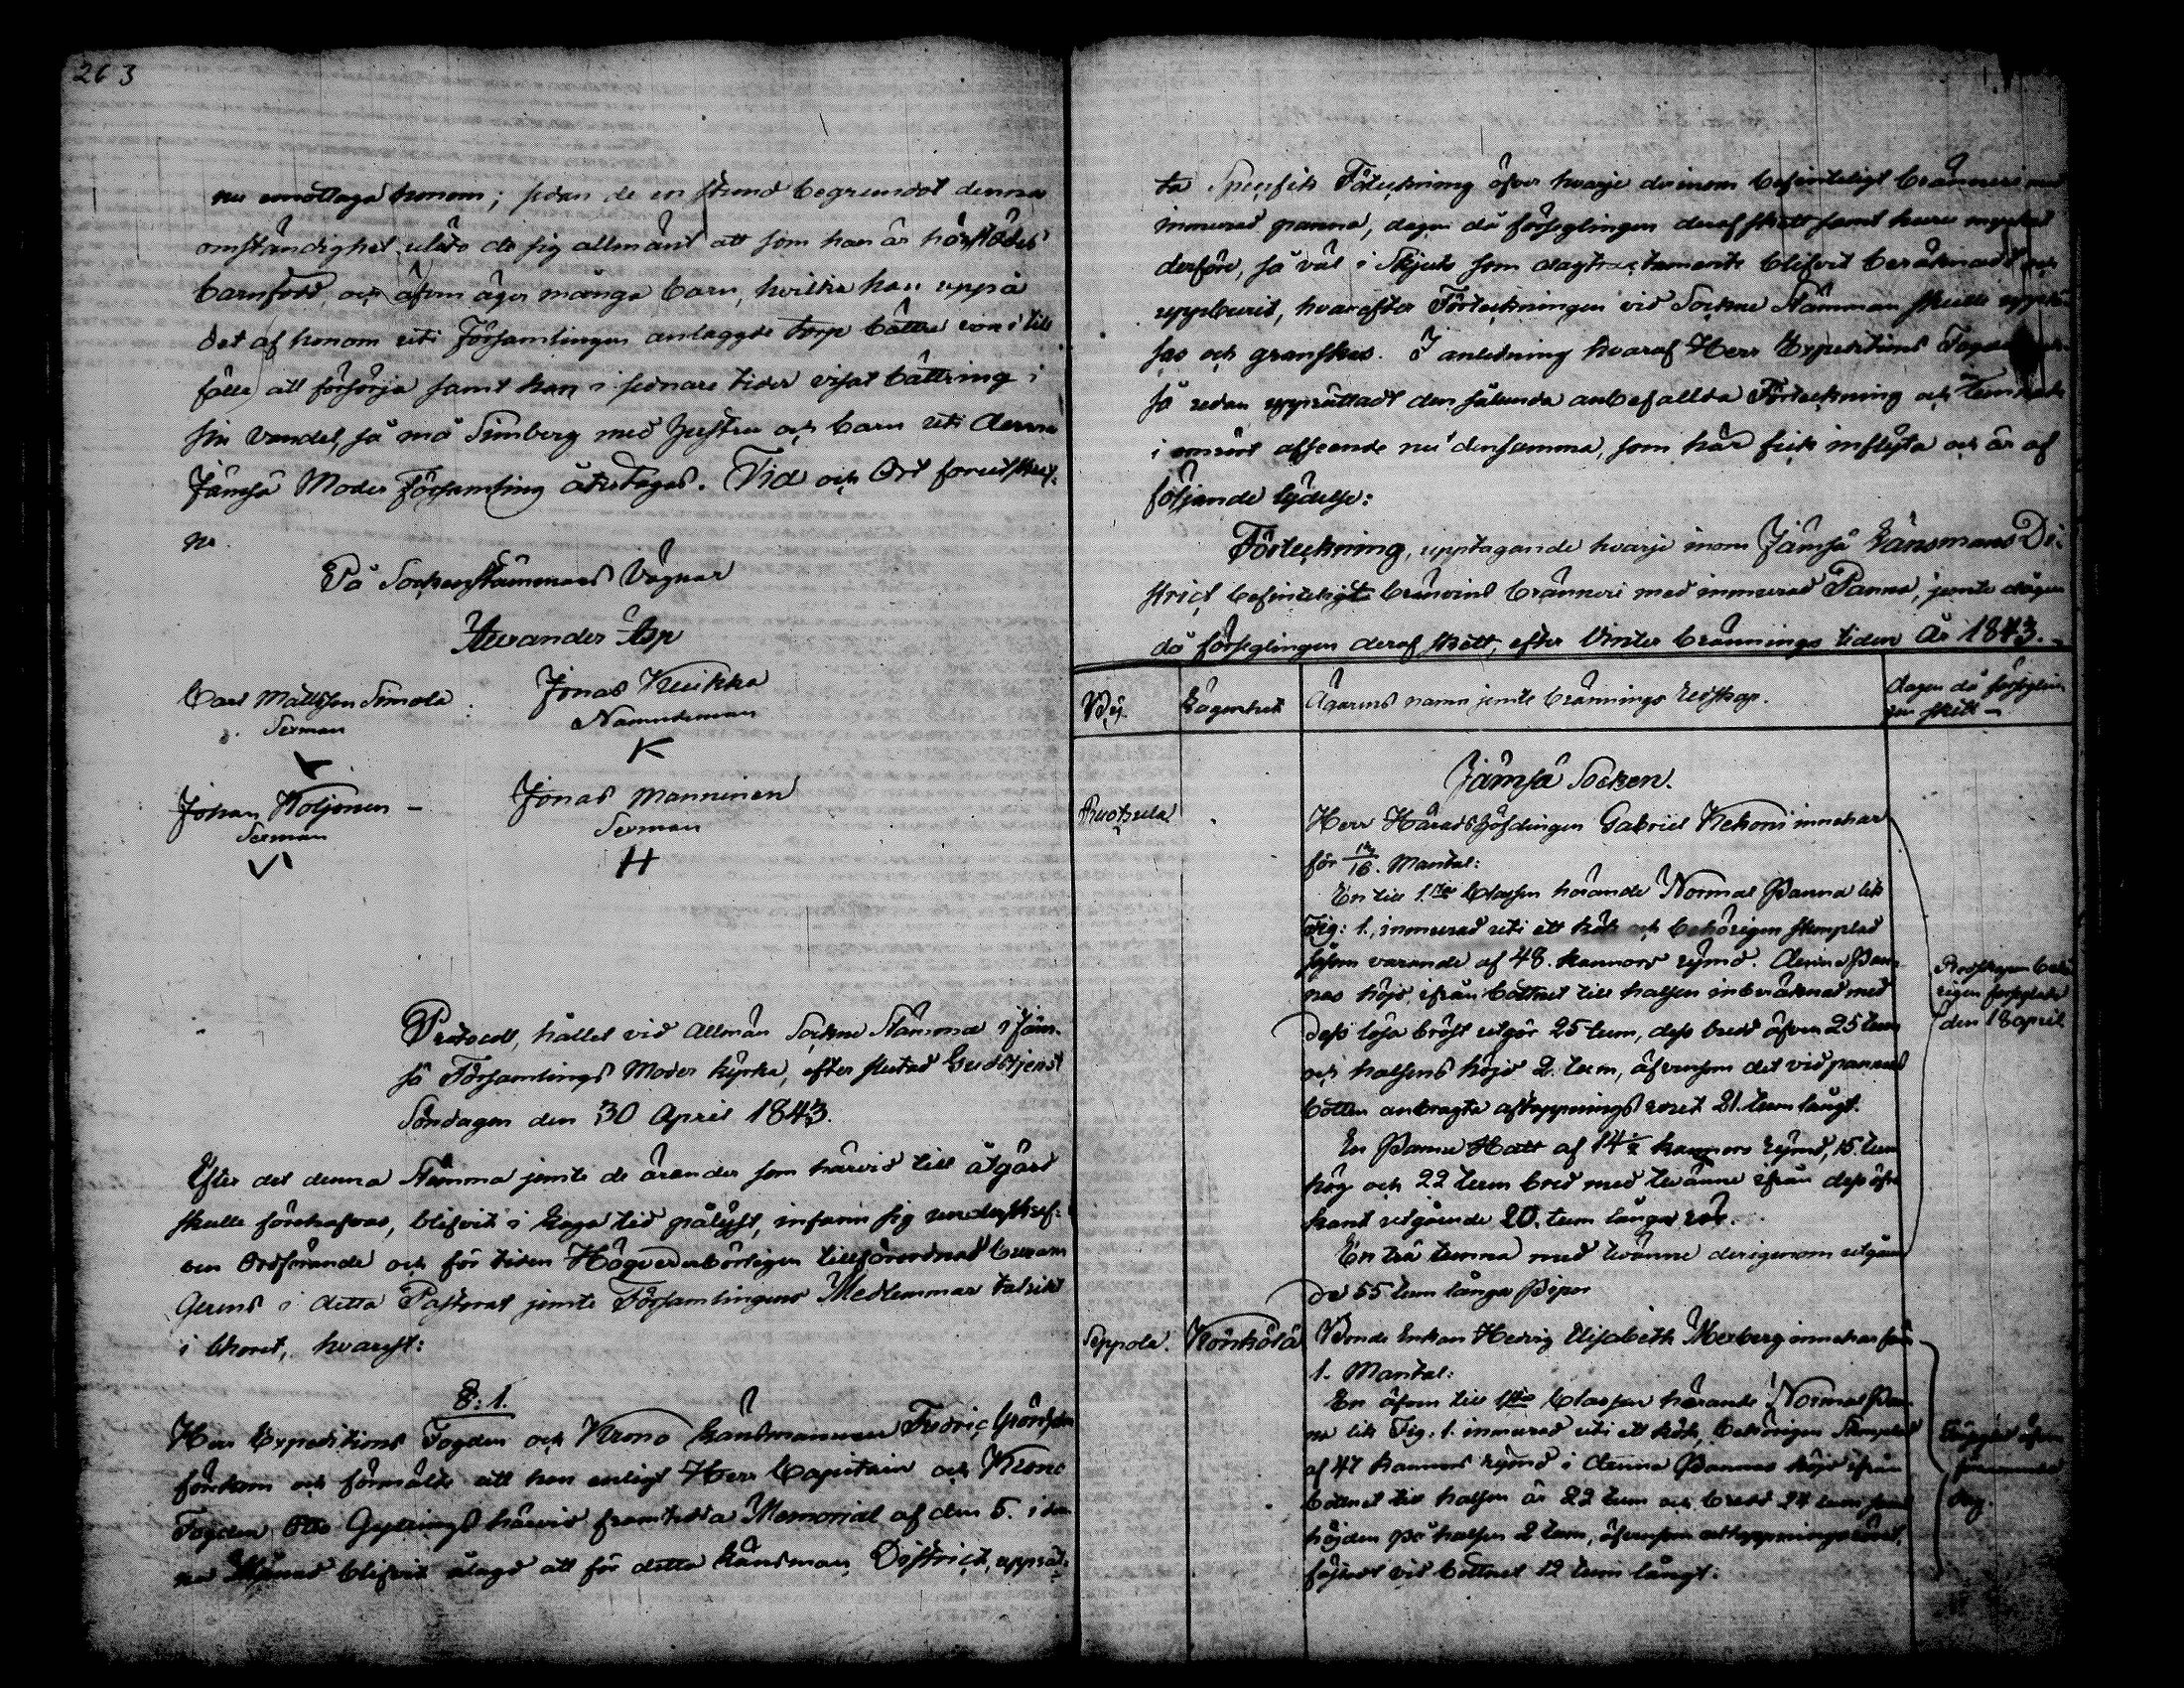 263
nu emottaga honom; sedan de en stund begrundat denna
omständighet, uläto de sig allmänt att som han är härstädes
barnfödd, och äfven äger många barn, hvilka han uppå
det af honom uti Församlingen anlaggde torp bättre vore i till
fälle att försörja samt han i sednare tider visat bättring i
sin vandel, så må Simberg med Hustru och barn uti denna
Jämsä Moder Församling återtagas. Tid och Ort förutskref-
ne.
På Sockenstämmans Vägnar
Alexander Asp
Carl Mattsson Simola
Sexman
Jonas Kuikka
Nämndeman
Johan Koljonen -
Sexman
Jonas Manninen
Sexman
Protocoll, hållet vid allmän Sockne Stämma i Jäm-
sä Församlings Moder kyrka, efter slutad Gudstjenst
Söndagen den 30 April 1843.
Efter det denna Stämma jemte de ärender som härvid till åtgärd
skulle förehafvas, blifvit i laga tid pålyst, infann sig underskref-
ven Ordförande och för tiden Högvederbörligen tillförordnad Curam
Gerens i detta Pastorat jemte Församlingens Medlemmar talrikt
i Choret, hvarest:
§: 1.
Herr Expeditions Fogden och Krono Länsmannen Fredric Grönholm
förekom och förmälte att han enligt Herr Capitain och Krono
Fogden Otto Gyllings härvid framtedda Memorial af den 5. i den
na Månad blifvit ålagd att för detta Länsmans District, upprät-
ta Specifik Förteckning öfver hvarje derinom befinteligt bränneri med
inmurad panna, dagen då förseglingen deraf skett samt huru mycket
derföre, så väl i Skjuts som dagtractamente blifvit beräknadt och
uppburit, hvarefter Förteckningen vid Sockne Stämman skulle upplä-
sas och granskas. I anledning hvaraf Herr Expeditions Fogden
så redan upprättadt den sålunda anbefallda Förteckning och lemnade
i omrört afseende nu densamma, som här fick inflyta och är af
följande lydelse:
Förteckning, upptagande hvarje inom Jämsä Länsmans Di-
strict befinteligt bränvins bränneri med inmurad Panna, jemte dagen
då förseglingen deraf skett, efter Vinter brännings tiden År 1843.
By. Lägenhet Ägarens namn jemte brännings redskap. dagen då förseglin
gen skett -
Jämsä Socken.
Ruotsula Herr Häradshöfdingen Gabriel Kekoni innehar
för /16. Mantal:
En till 1.sta Classen hörande Normal Panna lik
Fig: 1., inmurad uti ett kök och behörigen stemplad
såsom varande af 48. kannors rymd. denna Pan-
nas höjd, ifrån bottnet till halsen inberäknad med
dess lösa bröst utgör 25 tum, dess bredd äfven 25 tum
och halsens höjd 2. tum, äfvensom det vid pannans
botten anbragta aftappnings röret 21. tum långt.
En Panne Hatt af 14 1/2 kannors rymd, 15. tum
hög och 22 tum bred med tvänne ifrån dess öfre
kant utgående 20. tum långa rör.
En trä tunna med tvänne derigenom utgåen
de 55 tum långa Pipor
Redskapen behö
rigen förseglade
den 18 April
Seppola. Könkölä Bonde Enkan Hedvig Elisabeth Mexberg innehar för
1. Mantal:
En äfven till 1sta Classen hörande Normal Pan-
na lik Fig. 1. inmurad uti ett kök, behörigen Stemplad
af 47 kannors rymd i denna Pannas höjd ifrån
bottnet till halsen är 22 tum och bredd 24 tum samt
höjden på halsen 2 tum, äfvensom aftappningsröret,
fästadt vid bottnet 12 tum långt.
äfven
dag.